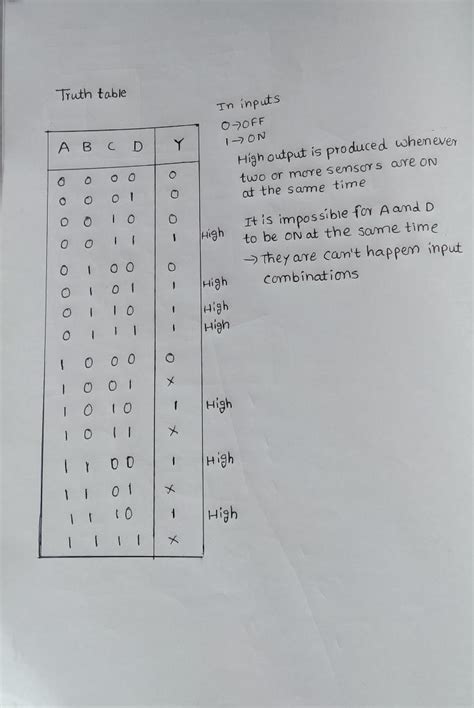 Truth table
In inputs
0→OFF
1→ON
High output is produced whenever
two or more sensors are ON
at the same time
It is impossible for A and D
to be ON at the same time
→ They are can't happen input
combinations
A B C D Y
0 0 0 0 0
0 0 0 1 0
0 0 1 0 0
0 0 1 1 1 High
0 1 0 0 0
0 1 0 1 1 High
0 1 1 0 1 High
0 1 1 1 1 High
1 0 0 0 0
1 0 0 1 x
1 0 1 0 1 High
1 0 1 1 x
1 1 0 0 1 High
1 1 0 1 x
1 1 1 0 1 High
1 1 1 1 x